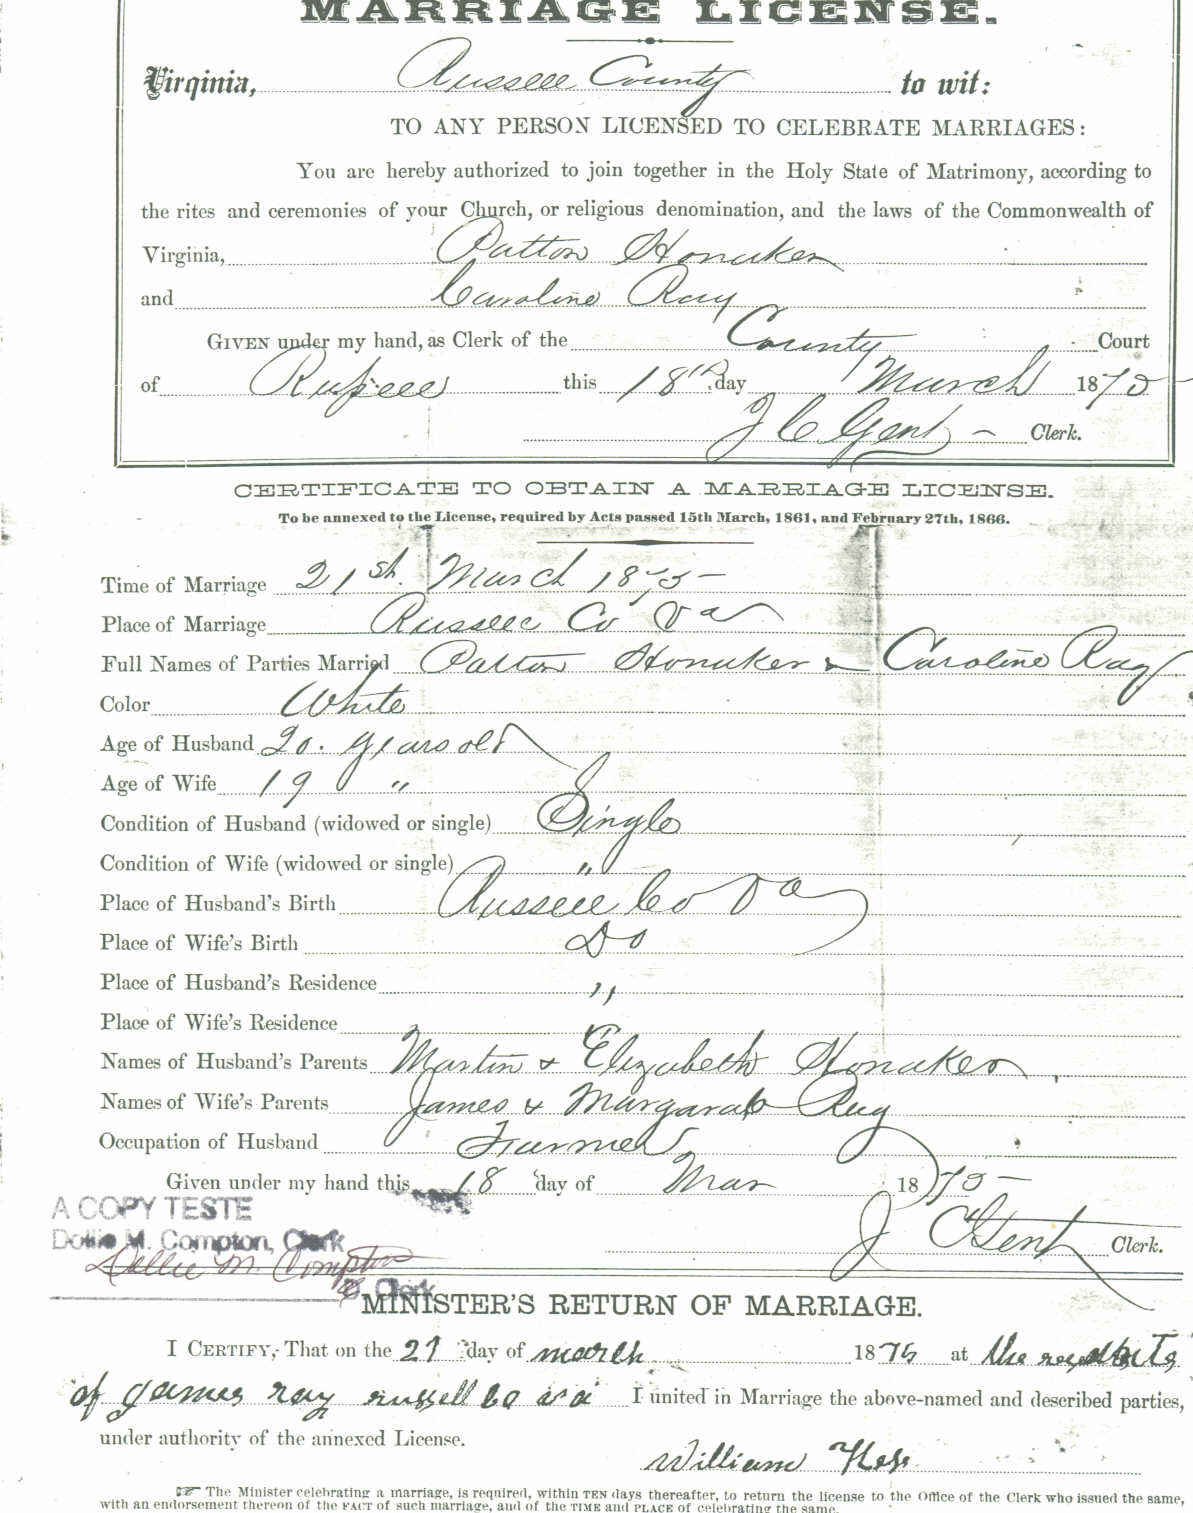 MARRIAGE LICENSE.
Virginia, Russell County to wit:
TO ANY PERSON LICENSED TO CELEBRATE MARRIAGES:
You are hereby authorized to join together in the Holy State of Matrimony, according to
the rites and ceremonies of your Church, or religious denomination, and the laws of the Commonwealth of
Virginia, Patton Honaker
and Caroline Ray
GIVEN under my hand, as Clerk of the County Court
of Russell this 18th day March 1875
J C Gent Clerk.
CERTIFICATE TO OBTAIN A MARRIAGE LICENSE.
To be annexed to the License, required by Acts passed 15th March, 1861, and February 27th, 1866.
Time of Marriage 21st. March 1875
Place of Marriage Russell Co Va
Full Names of Parties Married Patton Honaker & Caroline Ray
Color White
Age of Husband 20. years old
Age of Wife 19 "
Condition of Husband (widowed or single) Single
Condition of Wife (widowed or single) "
Place of Husband's Birth Russell Co Va
Place of Wife's Birth Do
Place of Husband's Residence "
Place of Wife's Residence
Names of Husband's Parents Martin & Elizabeth Honaker
Names of Wife's Parents James & Margarat Ray
Occupation of Husband Farmer
Given under my hand this 18 day of Mar 1875
A COPY TESTE
Dollie M. Compton, Clerk
J C Gent Clerk.
Dollie M. Compton
Clerk
MINISTER'S RETURN OF MARRIAGE.
I CERTIFY, That on the 21 day of march 1875 at the
of james ray russell co va I united in Marriage the above-named and described parties,
under authority of the annexed License.
William Hess
☞ The Minister celebrating a marriage, is required, within TEN days thereafter, to return the license to the Office of the Clerk who issued the same,
with an endorsement thereon of the FACT of such marriage, and of the TIME and PLACE of celebrating the same.